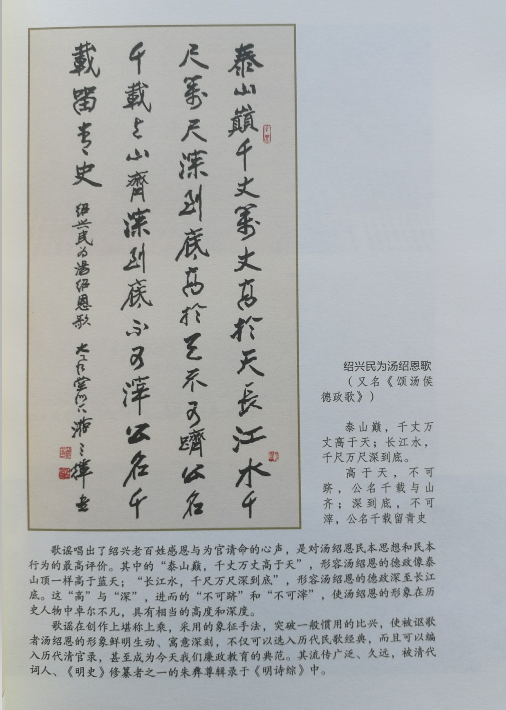 泰山巔千丈萬丈高於天長江水千
尺萬尺深到底高於天不可躋公名
千載与山齊深到底不可滓公名千
載留青史 绍兴民为湯绍恩歌
绍兴民为汤绍恩歌
（又名《颂汤侯
德政歌》）
泰山巅，千丈万
丈高于天；长江水，
千尺万尺深到底。
高于天，不可
跻，公名千载与山
齐；深到底，不可
滓，公名千载留青史
歌谣唱出了绍兴老百姓感恩与为官请命的心声，是对汤绍恩民本思想和民本
行为的最高评价。其中的“泰山巅，千丈万丈高于天”，形容汤绍恩的德政像泰
山顶一样高于蓝天；“长江水，千尺万尺深到底”，形容汤绍恩的德政深至长江
底。这“高”与“深”，进而的“不可跻”和“不可滓”，使汤绍恩的形象在历
史人物中卓尔不凡，具有相当的高度和深度。
歌谣在创作上堪称上乘，采用的象征手法，突破一般惯用的比兴，使被讴歌
者汤绍恩的形象鲜明生动、寓意深刻，不仅可以选入历代民歌经典，而且可以编
入历代清官录，甚至成为今天我们廉政教育的典范。其流传广泛、久远，被清代
词人、《明史》修纂者之一的朱彝尊辑录于《明诗综》中。